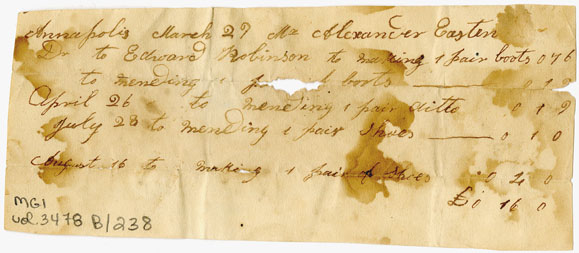 Annapolis March 29 Mr Alexander Easten
Dr to Edward Robinson to making 1 pair boots 0 7 6
to mending 1 pair boots 0 1 9
April 26 to mending 1 pair ditto 0 1 9
July 28 to mending 1 pair Shoes 0 1 0
August 16 to making 1 pair of Shoes 0 4 0
£0 16 0
MG1
vol. 3478 B/238